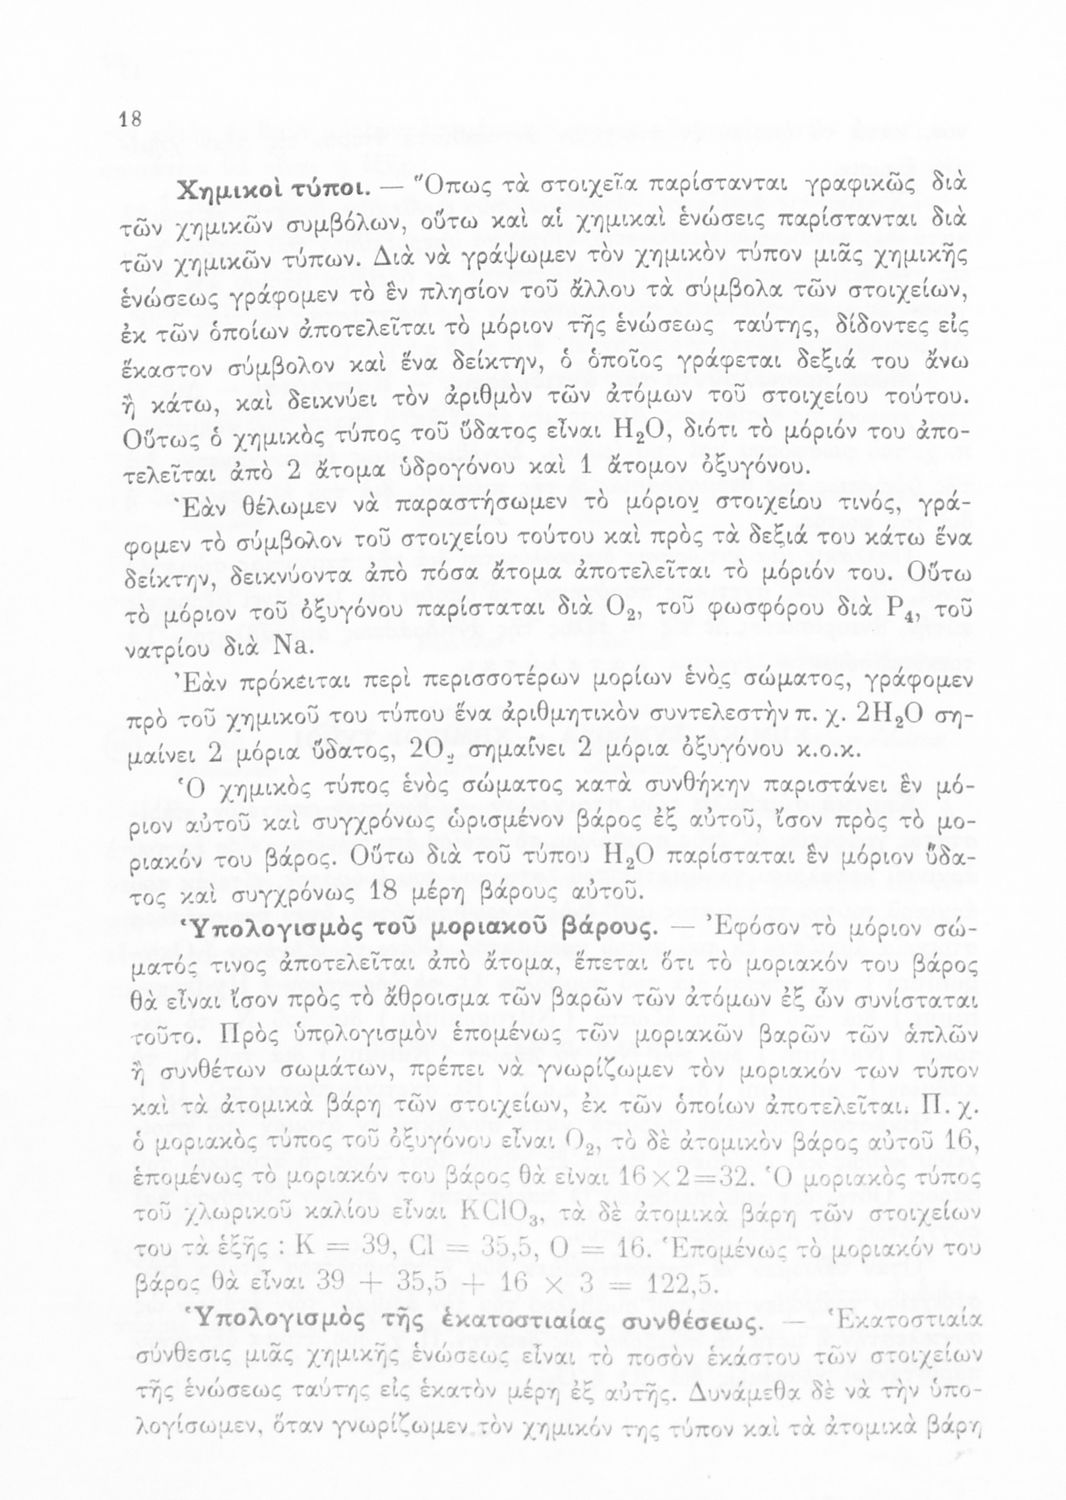 18
Χημικοὶ τύποι. — Ὅπως τὰ στοιχεῖα παρίστανται γραφικῶς διὰ
τῶν χημικῶν συμβόλων, οὕτω καὶ αἱ χημικαὶ ἑνώσεις παρίστανται διὰ
τῶν χημικῶν τύπων. Διὰ νὰ γράψωμεν τὸν χημικὸν τύπον μιᾶς χημικῆς
ἑνώσεως γράφομεν τὸ ἓν πλησίον τοῦ ἄλλου τὰ σύμβολα τῶν στοιχείων,
ἐκ τῶν ὁποίων ἀποτελεῖται τὸ μόριον τῆς ἑνώσεως ταύτης, δίδοντες εἰς
ἕκαστον σύμβολον καὶ ἕνα δείκτην, ὁ ὁποῖος γράφεται δεξιά του ἄνω
ἢ κάτω, καὶ δεικνύει τὸν ἀριθμὸν τῶν ἀτόμων τοῦ στοιχείου τούτου.
Οὕτως ὁ χημικὸς τύπος τοῦ ὕδατος εἶναι H₂O, διότι τὸ μόριόν του ἀπο-
τελεῖται ἀπὸ 2 ἄτομα ὑδρογόνου καὶ 1 ἄτομον ὀξυγόνου.
Ἐὰν θέλωμεν νὰ παραστήσωμεν τὸ μόριον στοιχείου τινός, γρά-
φομεν τὸ σύμβολον τοῦ στοιχείου τούτου καὶ πρὸς τὰ δεξιά του κάτω ἕνα
δείκτην, δεικνύοντα ἀπὸ πόσα ἄτομα ἀποτελεῖται τὸ μόριόν του. Οὕτω
τὸ μόριον τοῦ ὀξυγόνου παρίσταται διὰ O₂, τοῦ φωσφόρου διὰ P₄, τοῦ
νατρίου διὰ Na.
Ἐὰν πρόκειται περὶ περισσοτέρων μορίων ἑνὸς σώματος, γράφομεν
πρὸ τοῦ χημικοῦ του τύπου ἕνα ἀριθμητικὸν συντελεστὴν π. χ. 2H₂O ση-
μαίνει 2 μόρια ὕδατος, 2O₂ σημαίνει 2 μόρια ὀξυγόνου κ.ο.κ.
Ὁ χημικὸς τύπος ἑνὸς σώματος κατὰ συνθήκην παριστάνει ἓν μό-
ριον αὐτοῦ καὶ συγχρόνως ὡρισμένον βάρος ἐξ αὐτοῦ, ἴσον πρὸς τὸ μο-
ριακόν του βάρος. Οὕτω διὰ τοῦ τύπου H₂O παρίσταται ἓν μόριον ὕδα-
τος καὶ συγχρόνως 18 μέρη βάρους αὐτοῦ.
Ὑπολογισμὸς τοῦ μοριακοῦ βάρους. — Ἐφόσον τὸ μόριον σώ-
ματός τινος ἀποτελεῖται ἀπὸ ἄτομα, ἕπεται ὅτι τὸ μοριακόν του βάρος
θὰ εἶναι ἴσον πρὸς τὸ ἄθροισμα τῶν βαρῶν τῶν ἀτόμων ἐξ ὧν συνίσταται
τοῦτο. Πρὸς ὑπολογισμὸν ἑπομένως τῶν μοριακῶν βαρῶν τῶν ἁπλῶν
ἢ συνθέτων σωμάτων, πρέπει νὰ γνωρίζωμεν τὸν μοριακόν των τύπον
καὶ τὰ ἀτομικὰ βάρη τῶν στοιχείων, ἐκ τῶν ὁποίων ἀποτελεῖται. Π. χ.
ὁ μοριακὸς τύπος τοῦ ὀξυγόνου εἶναι O₂, τὸ δὲ ἀτομικὸν βάρος αὐτοῦ 16,
ἑπομένως τὸ μοριακόν του βάρος θὰ εἶναι 16×2=32. Ὁ μοριακὸς τύπος
τοῦ χλωρικοῦ καλίου εἶναι KClO₃, τὰ δὲ ἀτομικὰ βάρη τῶν στοιχείων
του τὰ ἑξῆς : K = 39, Cl = 35,5, O = 16. Ἑπομένως τὸ μοριακόν του
βάρος θὰ εἶναι 39 + 35,5 + 16 × 3 = 122,5.
Ὑπολογισμὸς τῆς ἑκατοστιαίας συνθέσεως. — Ἑκατοστιαία
σύνθεσις μιᾶς χημικῆς ἑνώσεως εἶναι τὸ ποσὸν ἑκάστου τῶν στοιχείων
τῆς ἑνώσεως ταύτης εἰς ἑκατὸν μέρη ἐξ αὐτῆς. Δυνάμεθα δὲ νὰ τὴν ὑπο-
λογίσωμεν, ὅταν γνωρίζωμεν τὸν χημικόν της τύπον καὶ τὰ ἀτομικὰ βάρη